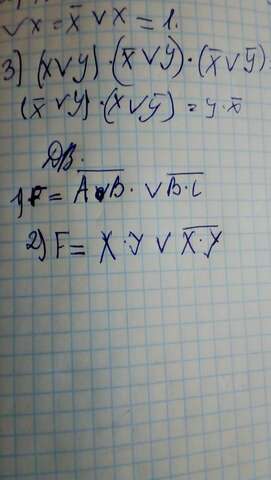 ∨ x = x̄ ∨ x = 1.
3) (x∨y)·(x̄∨y)·(x̄∨ȳ)
(x̄∨y)·(x∨ȳ) = y·x̄
ДВ.
1) F = A̅∨̅B̅·∨B̅·̅C̅
2) F = X·Y ∨ X̅·̅Y̅